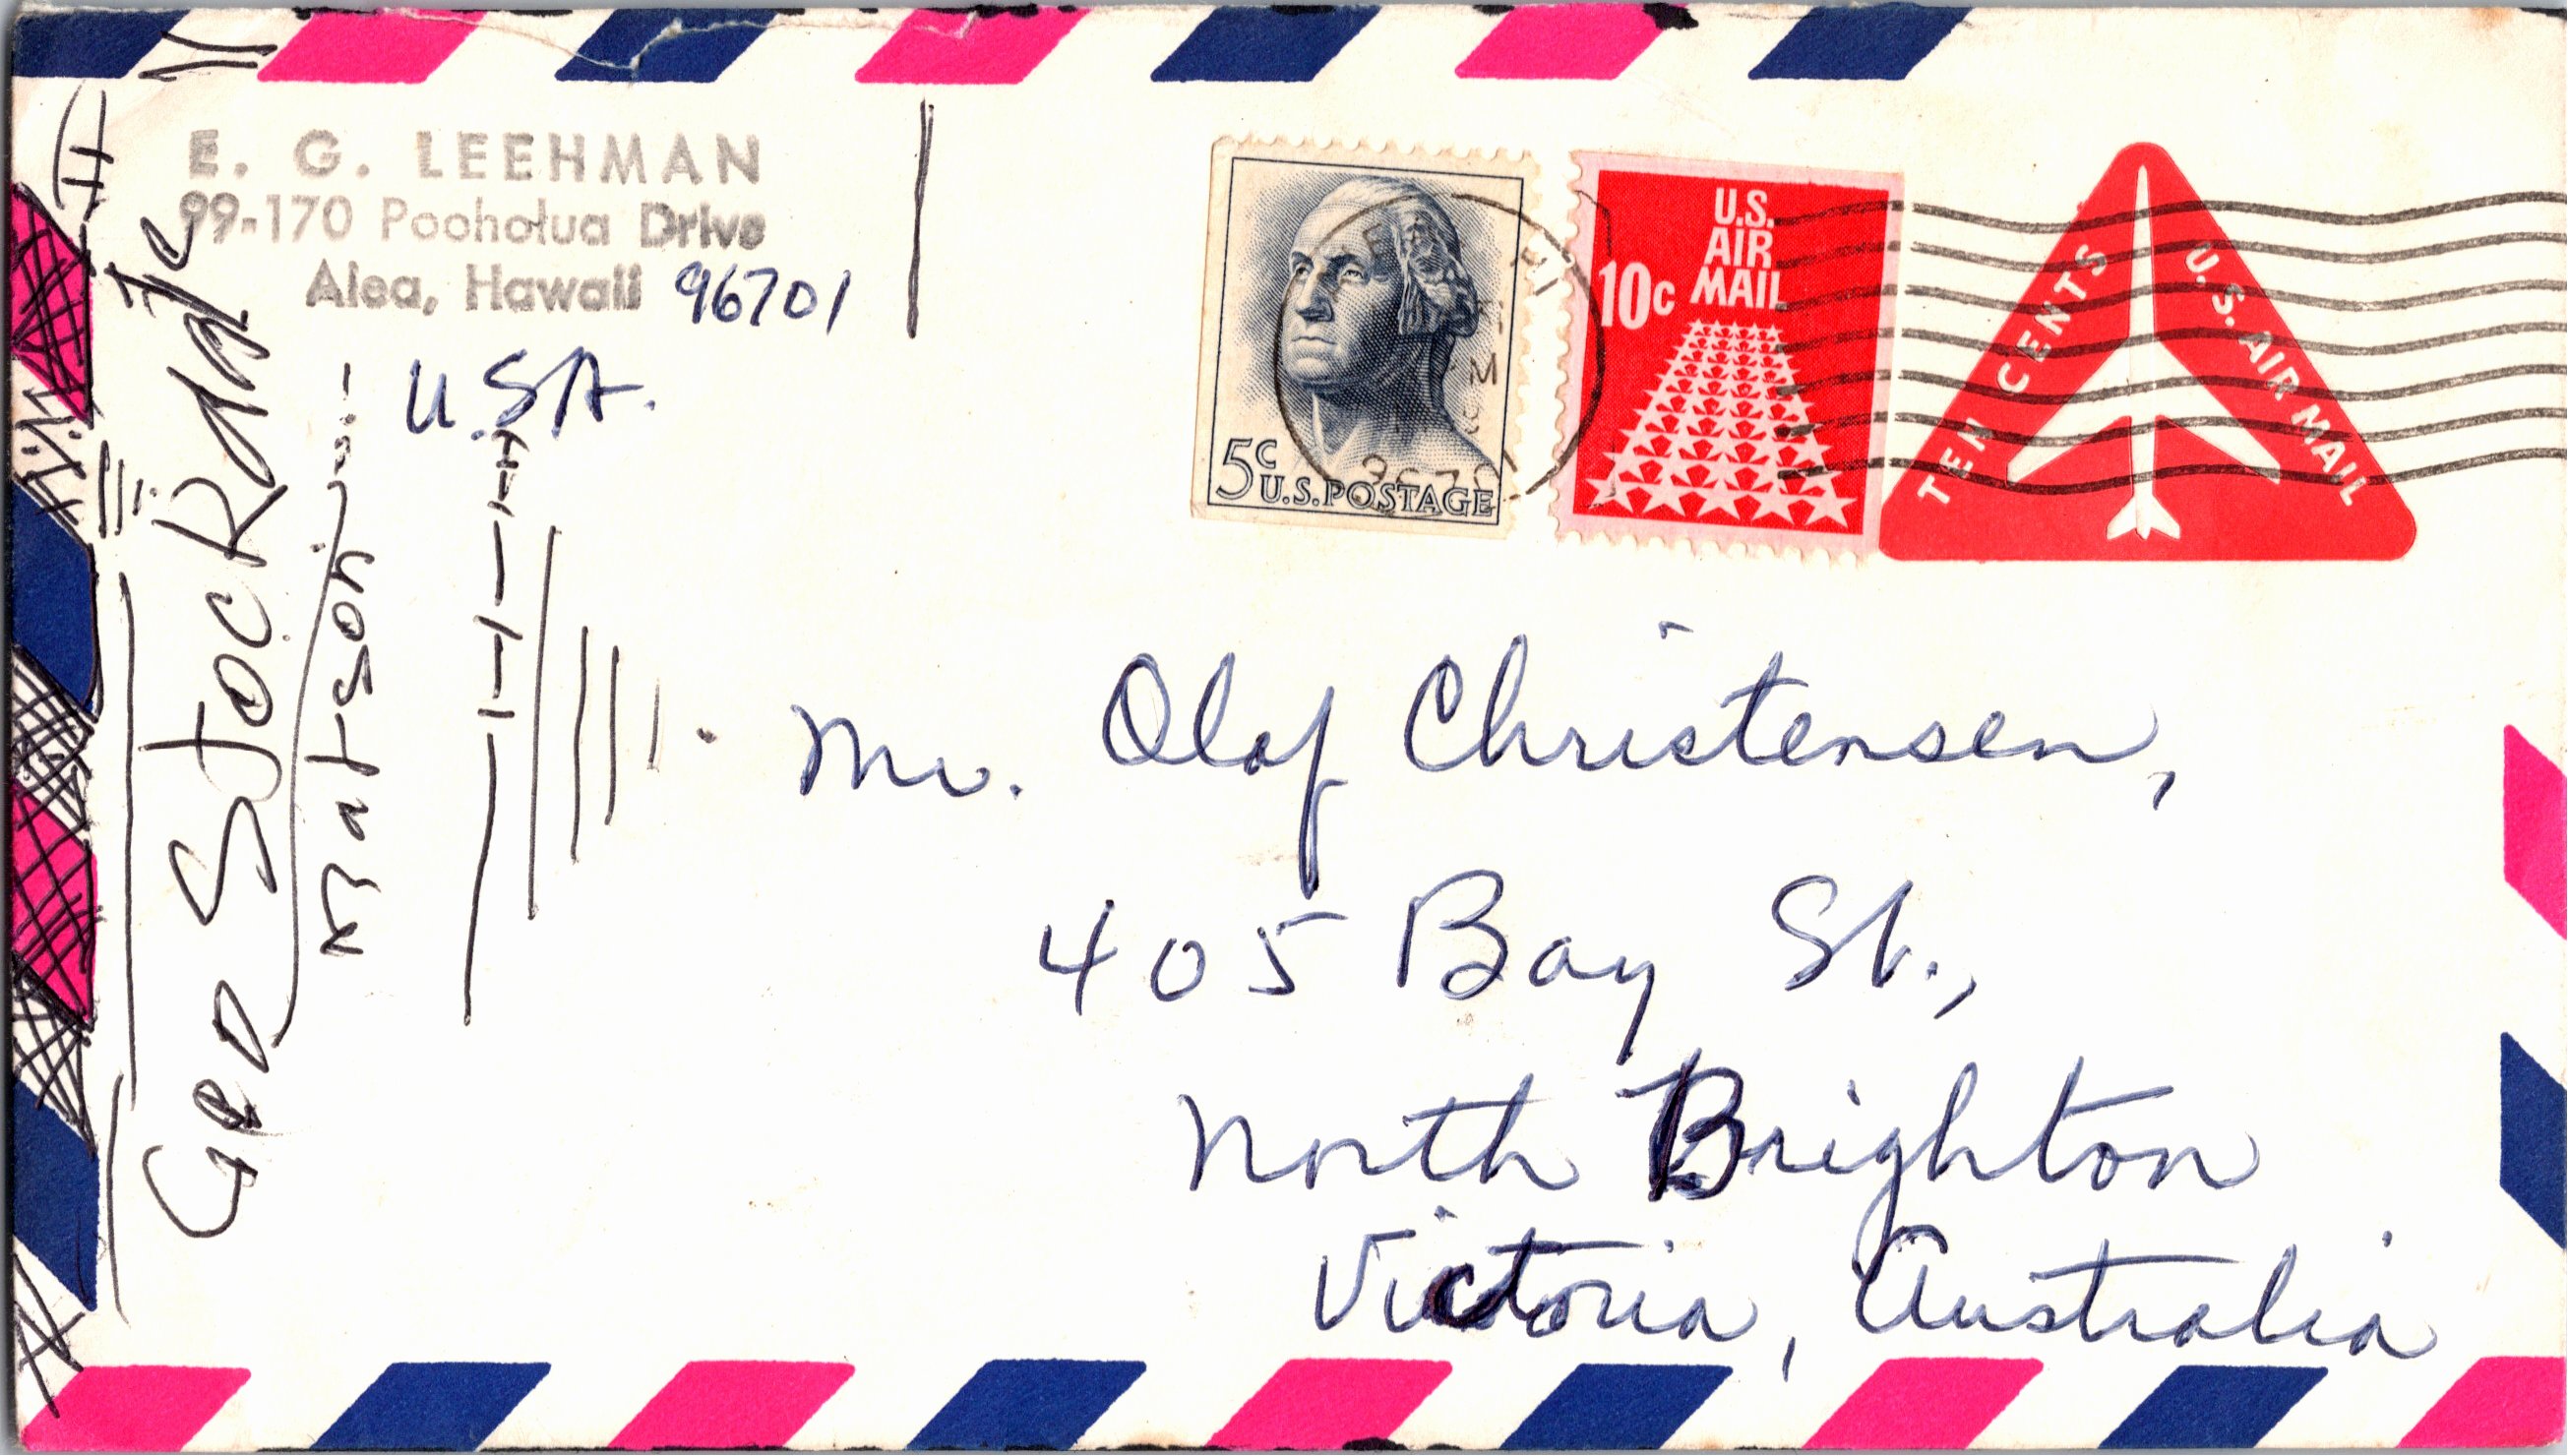 E. G. LEEHMAN
99-170 Pooholua Drive
Aiea, Hawaii 96701
U.S.A.
5c U.S. POSTAGE
U.S.
AIR
MAIL
10c
TEN CENTS
U.S. AIR MAIL
HI
M
96701
Mr. Olaf Christensen,
405 Bay St.,
North Brighton
Victoria, Australia
Matson